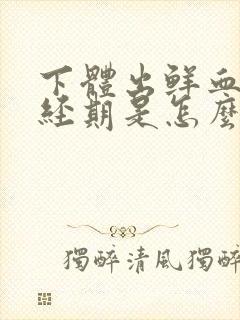 下體出鮮血
經期是怎麼
獨醉清風獨醉